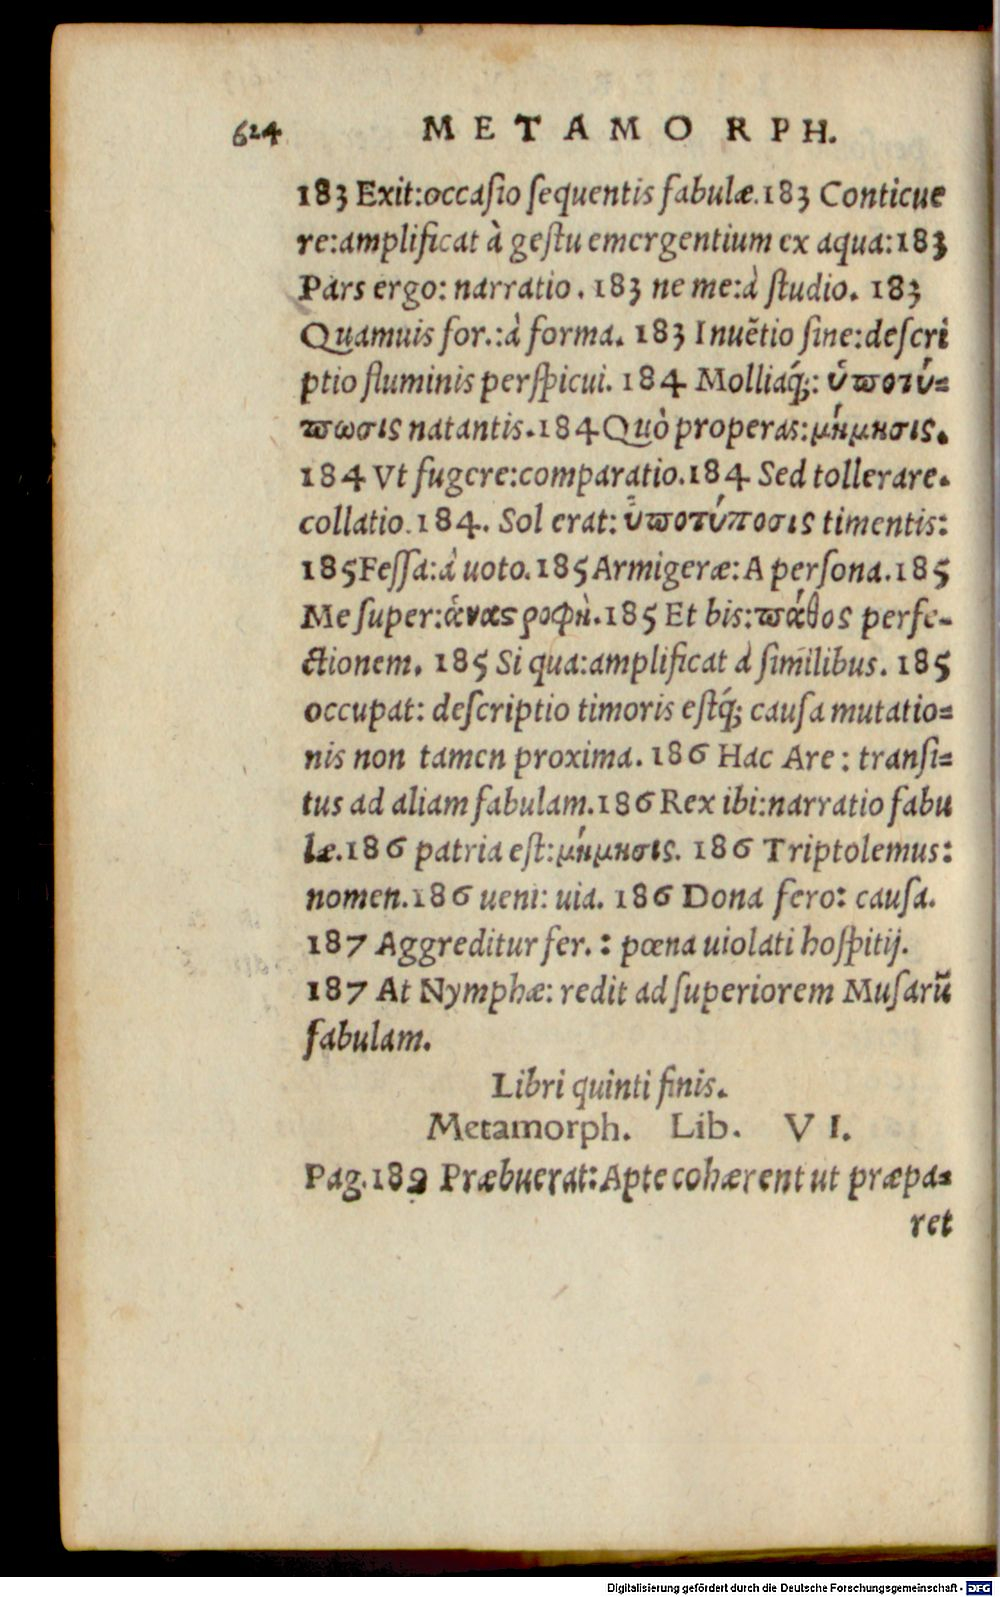 624 METAMORPH.
183 Exit:occasio ſequentis fabulæ.183 Conticue
re:amplificat à geſtu emergentium ex aqua:183
Pars ergo: narratio. 183 ne me:à ſtudio. 183
Quamuis for.:à forma. 183 Inuẽtio ſine:deſcri
ptio fluminis perſpicui. 184 Molliaq́;: ὑποτύ-
πωσις natantis.184 Quò properas:μήμησις.
184 Vt fugere:comparatio.184 Sed tollerare.
collatio.184. Sol erat: ὑποτύποσις timentis:
185 Feſſa:à uoto.185 Armigeræ: A perſona.185
Me ſuper:ἀναςροφὴ.185 Et bis:πάθος perfe-
ctionem. 185 Si qua:amplificat à ſimilibus. 185
occupat: deſcriptio timoris eſtq́; cauſa mutatio-
nis non tamen proxima. 186 Hac Are: tranſi-
tus ad aliam fabulam.186 Rex ibi:narratio fabu
læ.186 patria eſt:μήμησις. 186 Triptolemus:
nomen.186 ueni: uia. 186 Dona fero: cauſa.
187 Aggreditur fer.: pœna uiolati hoſpitij.
187 At Nymphæ: redit ad ſuperiorem Muſarũ
fabulam.
Libri quinti finis.
Metamorph. Lib. VI.
Pag.189 Præbuerat: Apte cohærent ut præpa-
ret
Digitalisierung gefördert durch die Deutsche Forschungsgemeinschaft - DFG